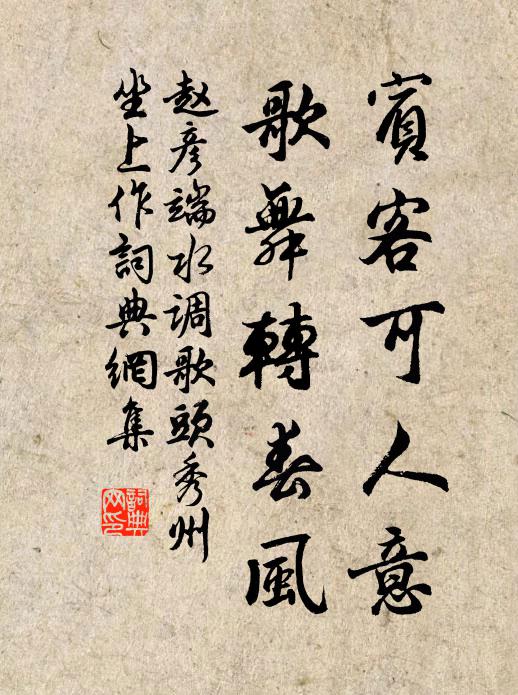 賓客可人意
歌舞轉春風
赵彦端水调歌頭秀州
坐上作詞典網集
詞典网印